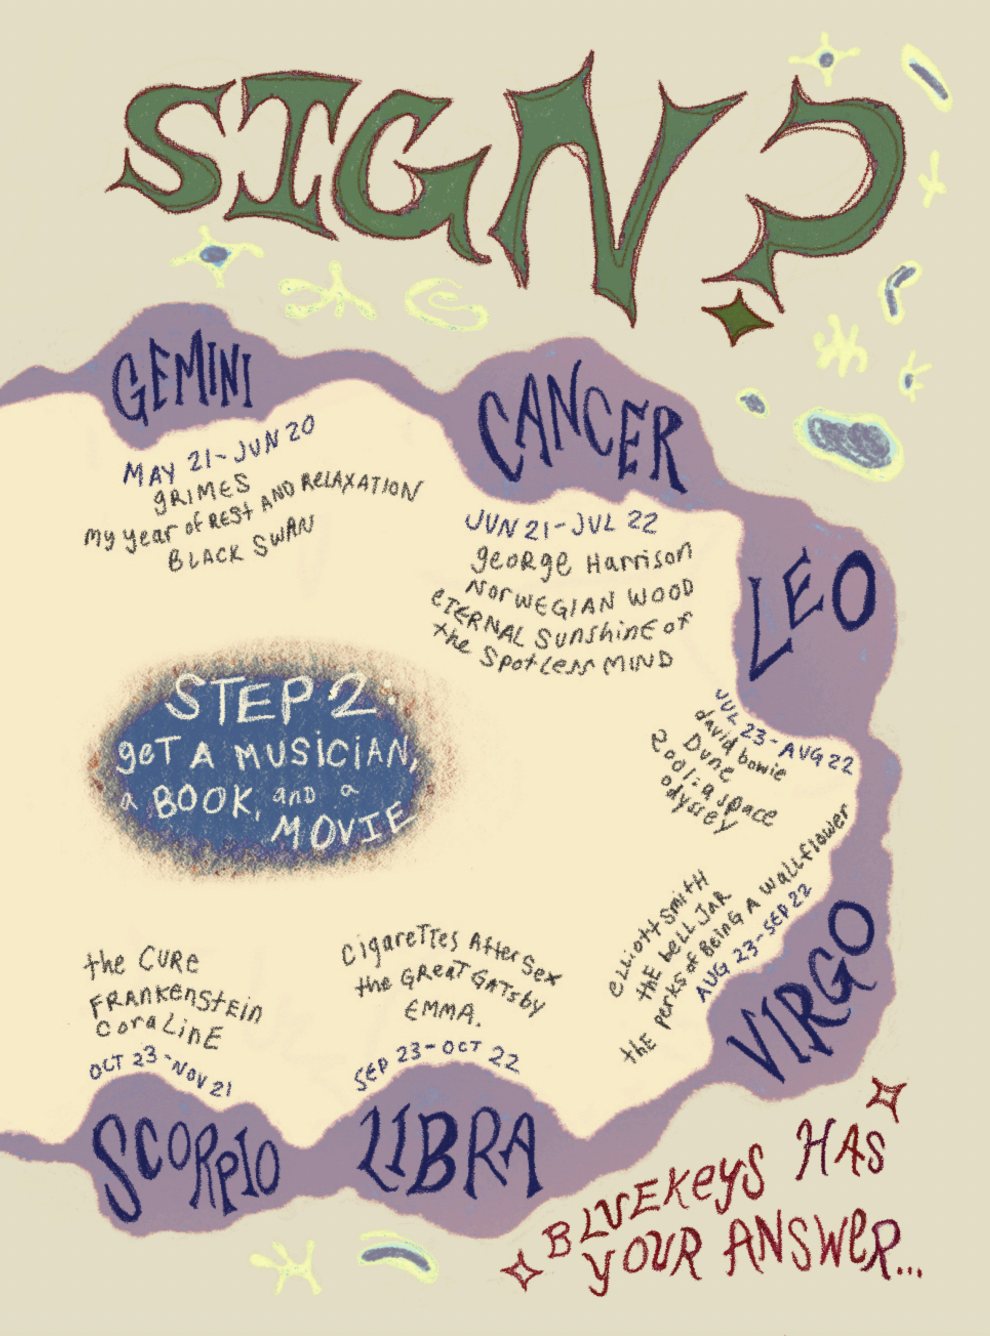 SIGN?
GEMINI
MAY 21-JUN 20
GRIMES
my year of REST AND RELAXATION
BLACK SWAN
CANCER
JUN 21-JUL 22
geoRge Harrison
NORWEGIAN WOOD
eTERNAL SunshinE of
the Spotless MIND
LEO
JUL 23-AUG 22
david bowie
Dune
2001: a space
odyssey
STEP 2:
geT A MUSiCiAN,
a BOOK, and a
MOVIE
eLLiott Smith
tHE beLL JAR
thE perks of BeinG A Wallflower
AUG 23-SEP 22
VIRGO
CigareTTes After Sex
the GReaT GATsby
EMMA.
SEP 23-OCT 22
LIBRA
the CURe
FRANKenstEin
CoraLinE
OCT 23-NOV 21
SCORPIO
BLUEKeyS HAS
yOUR ANSWeR...